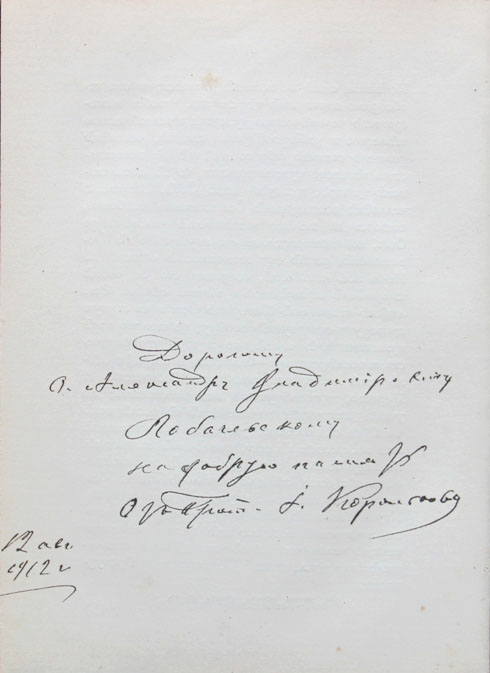 Дорогому
о. Александру Владимировичу
Лобачевскому
на добрую память
отъ Прот. І.
12 авг.
1912 г.